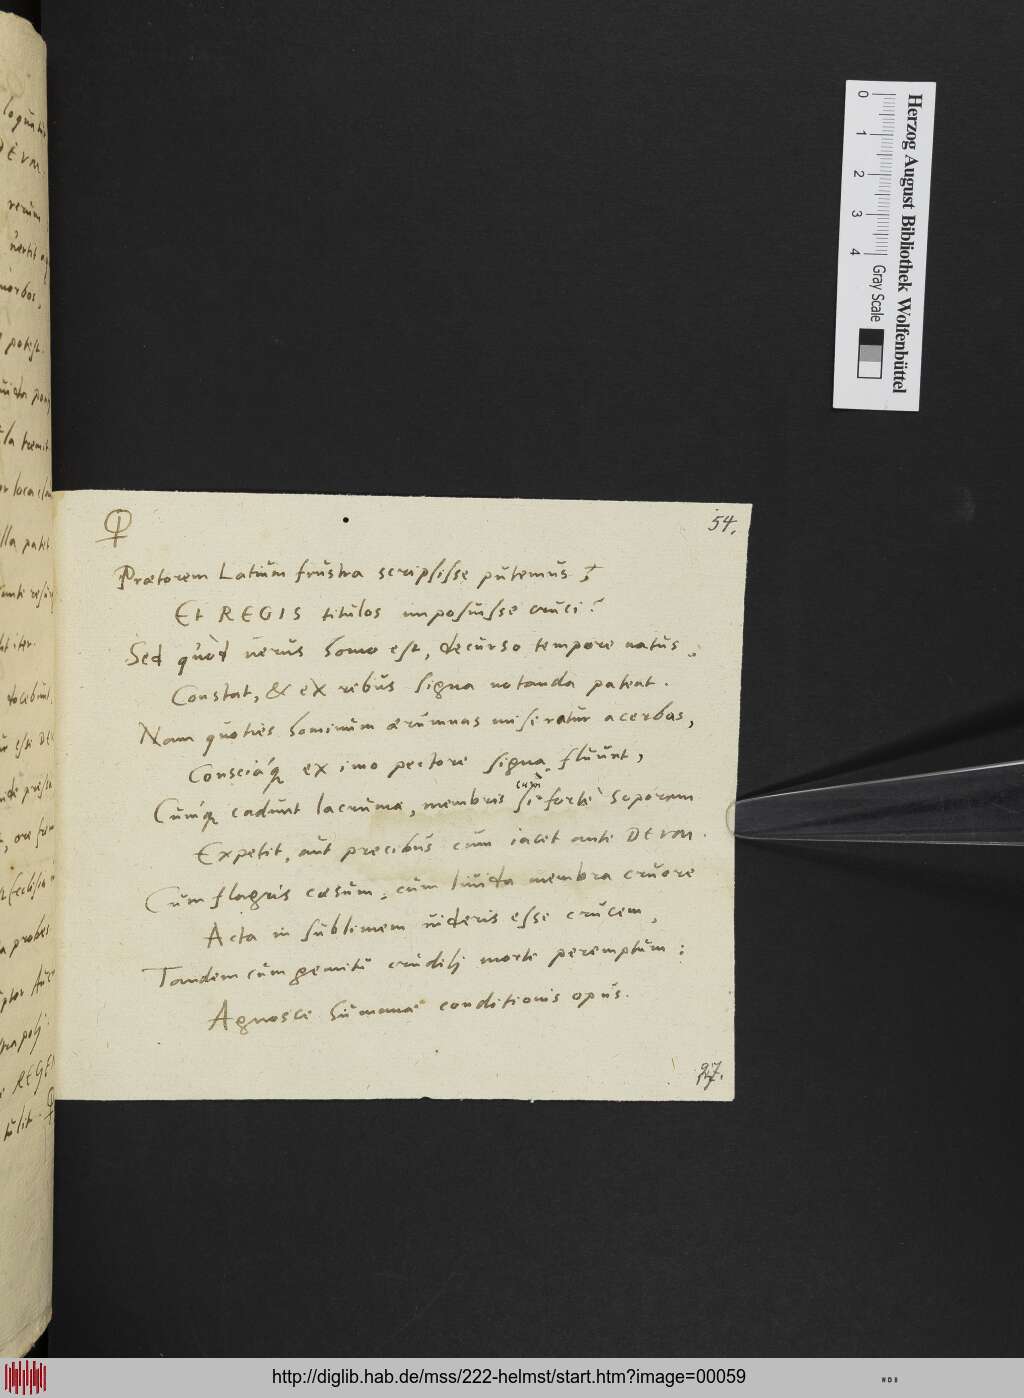 Herzog August Bibliothek Wolfenbüttel
0 1 2 3 4 Gray Scale
54.
Prætorem Latium frustra scripsisse putemus
Et REGIS titulos imposuisse cruci?
Sed quod verus homo est, decurso tempore natus
Constat, & ex rebus signa notanda pateat.
Nam quoties hominum ærumnas miseratur acerbas,
Consciáq ex imo pectore signa fluunt,
cum
Cumq cadunt lacrumæ, membris si forte soporem
Expetit, aut precibus cum iacet ante DEVM.
Cum flagris cæsum, cum livida membra cruore
Acta in sublimem videris esse crucem,
Tandem cum gemitu crudeli morte peremptum:
Agnosce humanæ conditionis opus.
loquu
DEVM.
rerum
vertit
morbos,
potest.
tremit
loca
patet
iter.
docebunt
probes
REGE
tulit.
http://diglib.hab.de/mss/222-helmst/start.htm?image=00059